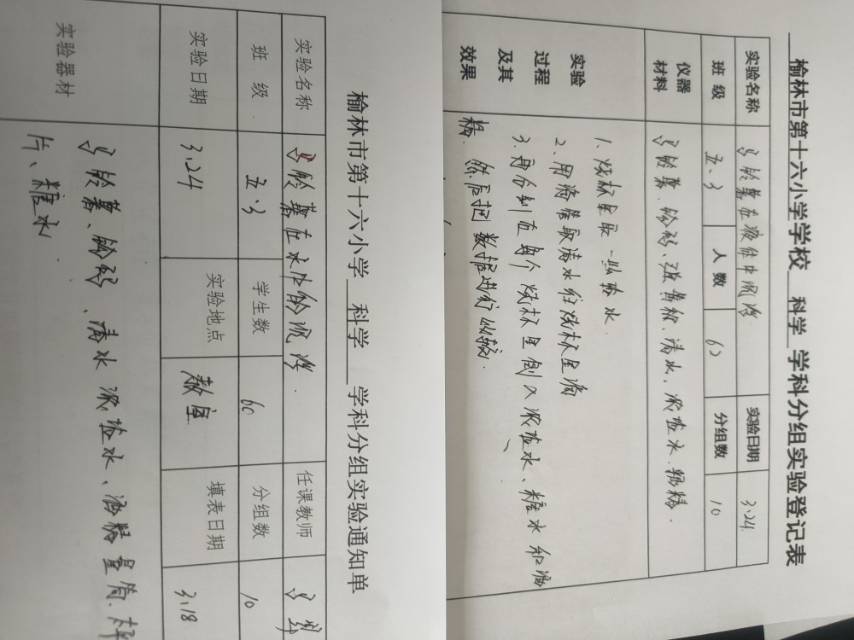 榆林市第十六小学 科学 学科分组实验通知单
实验名称 马铃薯在水中的沉浮 任课教师
班级 五.3 学生数 60 分组数 10
实验日期 3.24 实验地点 教室 填表日期 3.18
实验器材
马铃薯、钩码、清水 浓盐水、酒精
片、糖水
榆林市第十六小学学校 科学 学科分组实验登记表
实验名称 马铃薯在液体中沉浮 实验日期 3.24
班级 五.3 人数 62 分组数 10
仪器材料 马铃薯、钩码、清水、浓盐水、
实验过程及其效果
1. 烧杯里取一些
2. 用滴管取清水往烧杯里滴
3. 再分别在每个烧杯里倒入浓盐水、糖水和酒
精. 然后把数据进行比较.